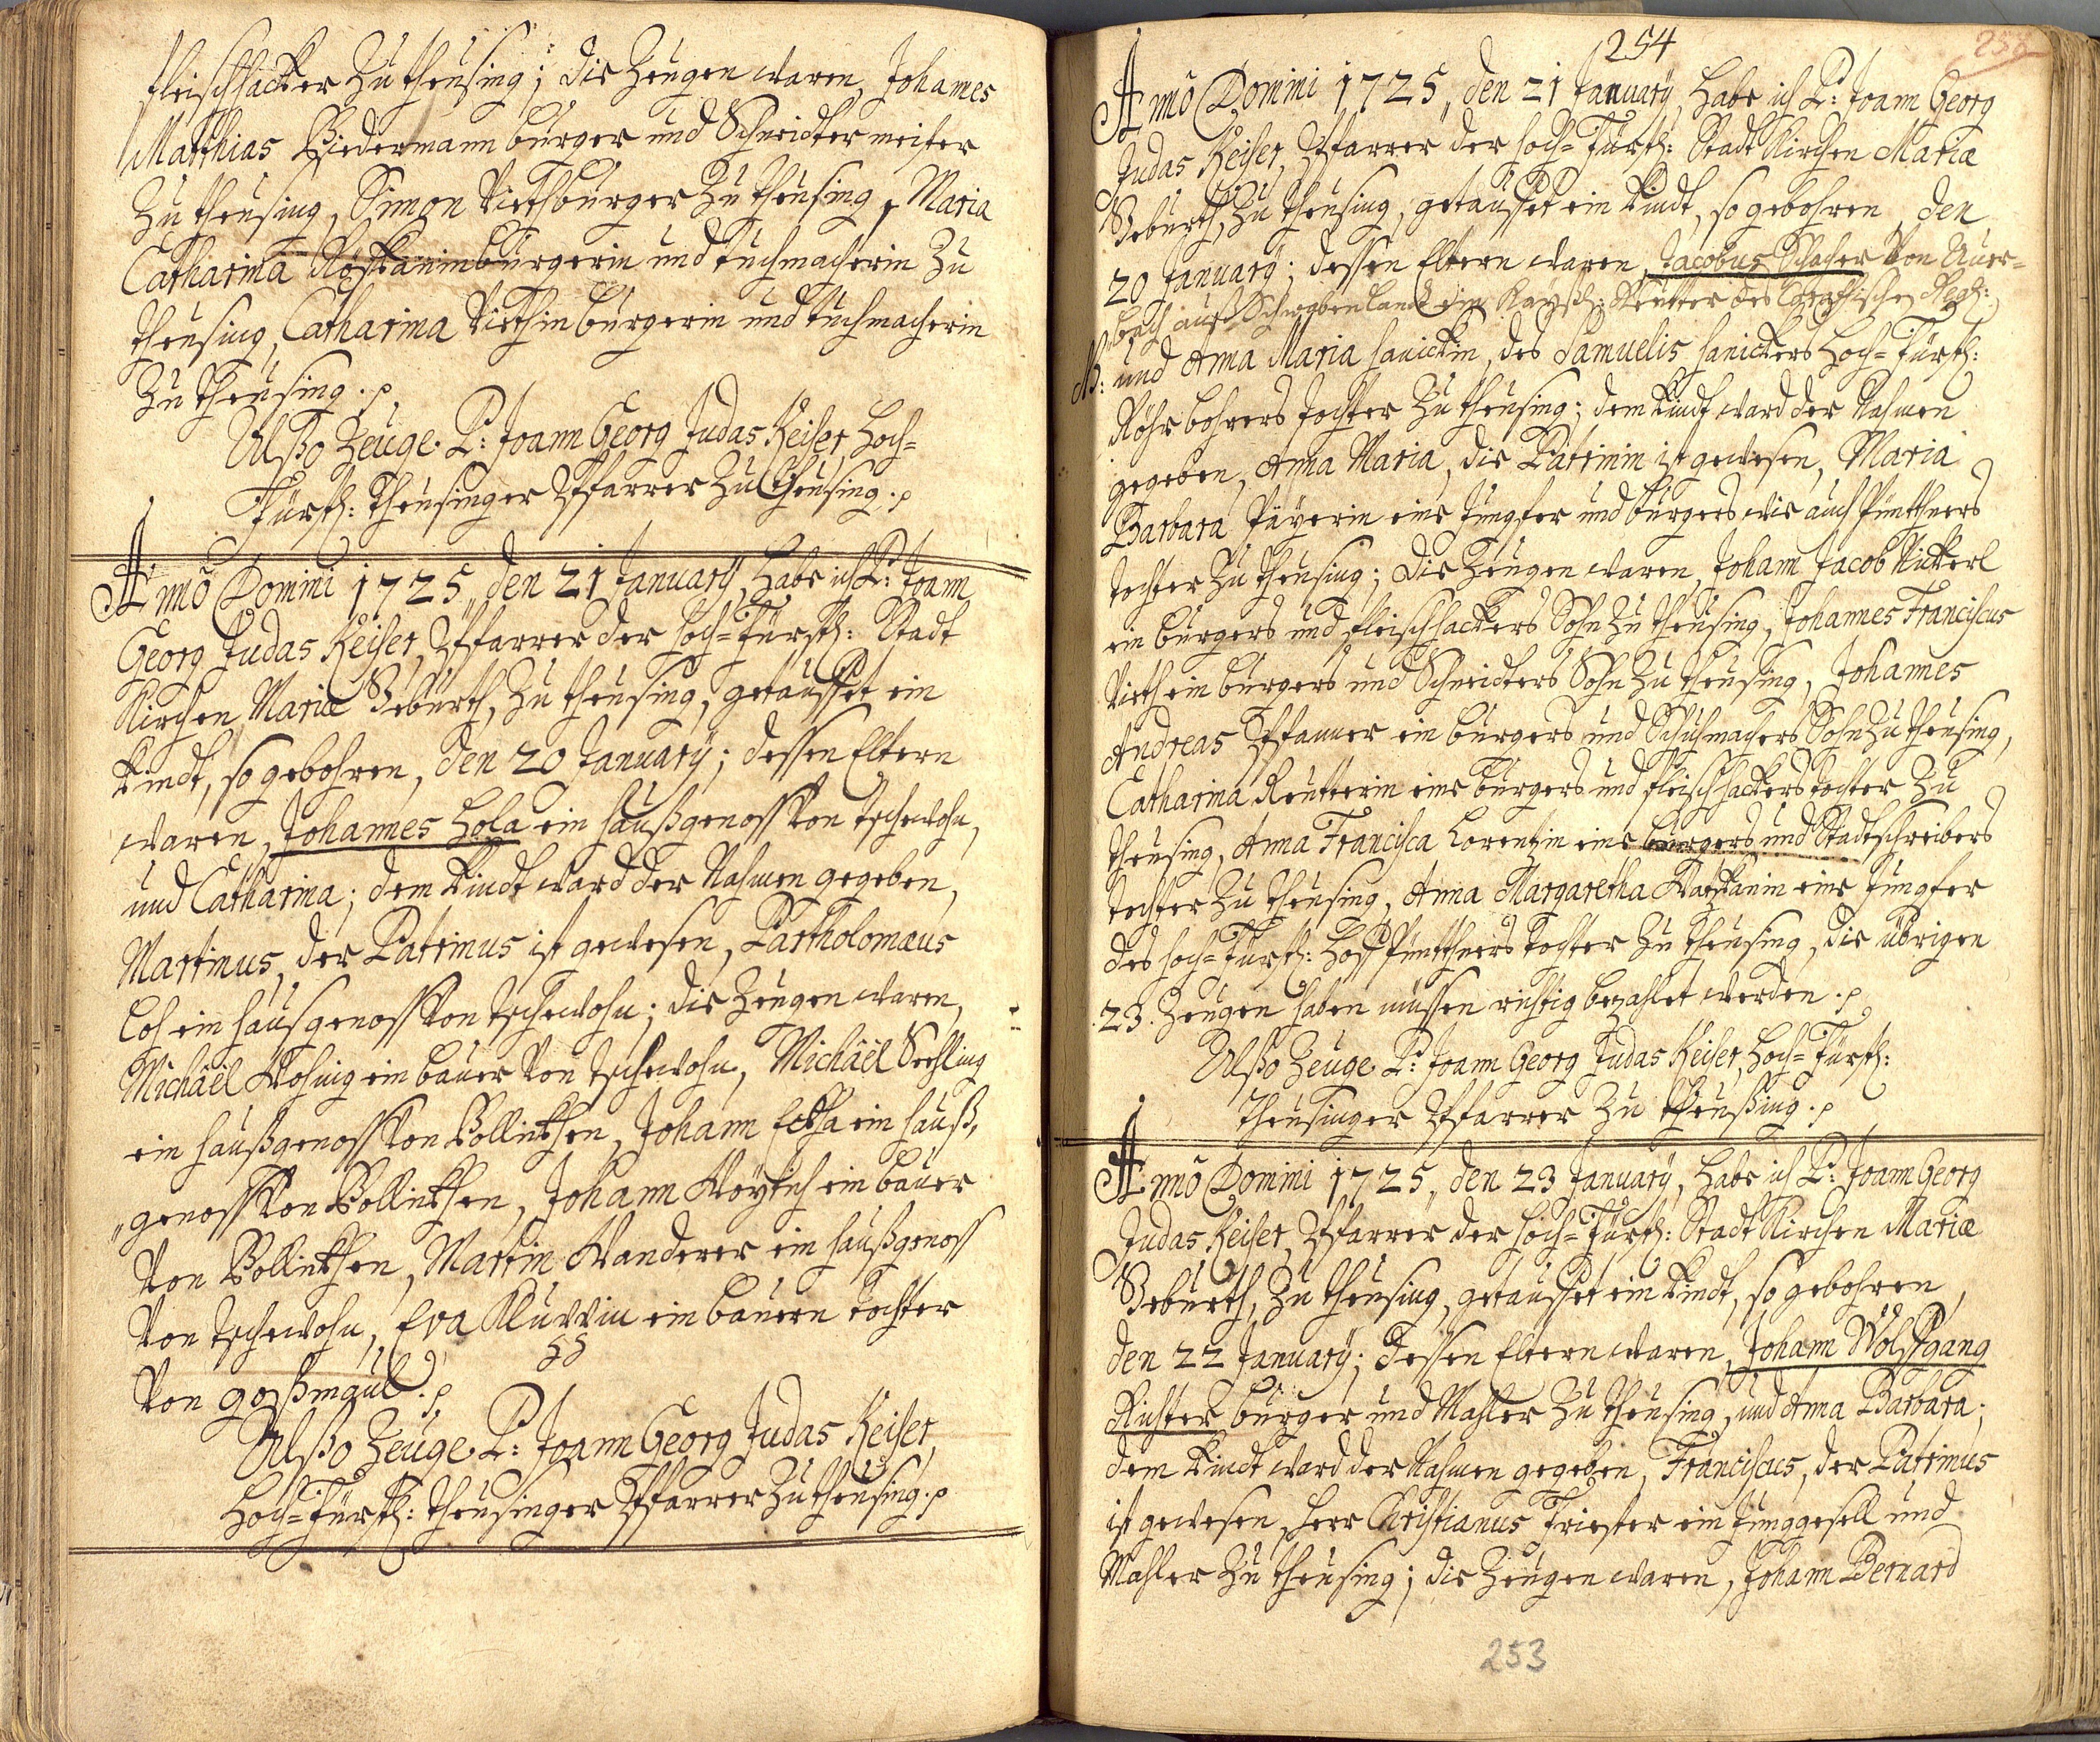 fleischhacker Zu theusing; die Zeugen waren, Johannes
Matthias Biedermann burger und Schneider meister
Zu theusing, Simon Vieth burger Zu theusing, Maria
Catharina burgerin und tuchmacherin Zu
theusing, Catharina Viethin burgerin und tuchmacherin
Zu theusing.
Alßo Zeuge P: Joann Georg Judas Keiser, Hoch=
Fürstl: theusinger Pfarrer Zu theusing.
Anno Domini 1725, den 21 January, habe ich P: Joann
Georg Judas Keiser, Pfarrer der Hoch=Fürstl: Stadt
Kirchen Mariæ Geburth, Zu theusing, getauffet ein
Kindt, so gebohren, den 20 January; dessen Eltern
waren, Johannes Hola ein haußgenoss von tschewohn,
und Catharina; dem Kindt ward der Nahmen gegeben,
Martinus, der Patrinus ist gewesen, Bartholomæus
Loh ein hausgenoss von tschewohn; die Zeugen waren,
Michaël ein bauer von tschewohn, Michaël Sechling
ein haußgenoss von Pollinkhen, Johann ein hauß,
"genoss von Pollinkhen, Johann ein bauer
von Pollinkhen, Martin Wanderer ein haußgenoss
von tschewohn, Eva ein bauern tochter
von goßmaul.
Alßo Zeuge P: Joann Georg Judas Keiser,
Hoch=Fürstl: theusinger Pfarrer Zu theusing.
254
Anno Domini 1725, den 21 January, habe ich P: Joann Georg
Judas Keiser, Pfarrer der Hoch=Fürstl: Stadt Kirchen Mariæ
Geburth, Zu theusing, getauffet ein Kindt, so gebohren, den
20 January; dessen Eltern waren, Jacobus Schacher von Auer=
bach auß Schwabenland ein Kaysl: Reutter des Regt:
und Anna Maria hanickin, des Samuelis hanickers Hoch=Fürstl:
Röhrbohrers tochter Zu theusing; dem Kindt ward der Nahmen
gegeben, Anna Maria, die Patrinin ist gewesen, Maria
Barbara Päyerin eine Jungfer und burgers wie auch
tochter Zu theusing; die Zeugen waren, Johann Jacob Nickerl
ein burgers und fleischhackers Sohn Zu theusing, Johannes Franciscus
Vieth ein burgers und Schneiders Sohn Zu theusing, Johannes
Andreas Pfanner ein burgers und Schuhmachers Sohn Zu theusing,
Catharina Reutterin eine burgers und fleischhackers tochter Zu
theusing, Anna Francisca Lorentzin eine burgers und Stadtschreibers
tochter Zu theusing, Anna Margaretha eine Jungfer
des Hoch=Fürstl: tochter Zu theusing, die übrigen
23. Zeugen haben müssen richtig bezahlet werden.
Alßo Zeuge P: Joann Georg Judas Keiser, Hoch=Fürstl:
theusinger Pfarrer Zu theußing.
Anno Domini 1725, den 23 January, habe ich P: Joann Georg
Judas Keiser, Pfarrer der Hoch=Fürstl: Stadt Kirchen Mariæ
Geburth, Zu theusing, getauffet ein Kindt, so gebohren,
den 22 January; dessen Eltern waren, Johann Wolffgang
Richter burger und Mahler Zu theusing, und Anna Barbara;
dem Kindt ward der Nahmen gegeben, Franciscus, der Patrinus
ist gewesen, herr Christianus Friester ein Junggesell und
Mahler Zu theusing; die Zeugen waren, Johann Bernard
253